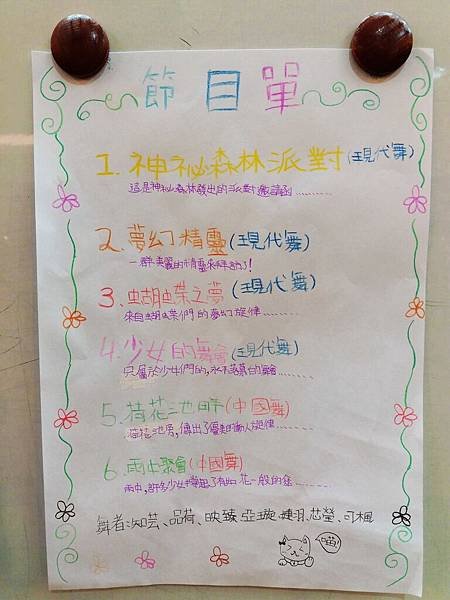 節目單
1. 神祕森林派對(現代舞)
這是神祕森林發出的派對邀請函………
2. 夢幻精靈(現代舞)
一群美麗的精靈來採訪了!
3. 蝴蝶之夢(現代舞)
來自蝴蝶們的夢幻旋律………
4. 少女的舞會(現代舞)
只屬於少女們的,永不落幕的舞會………
5. 荷花池畔(中國舞)
荷花池旁,傳出了優美動人旋律………
6. 雨中聚會(中國舞)
雨中,許多少女撐起了有如花一般的傘……
舞者:汝芸、品荷、映臻、亞璇、婕羽、芯瑩、可楓
喵!